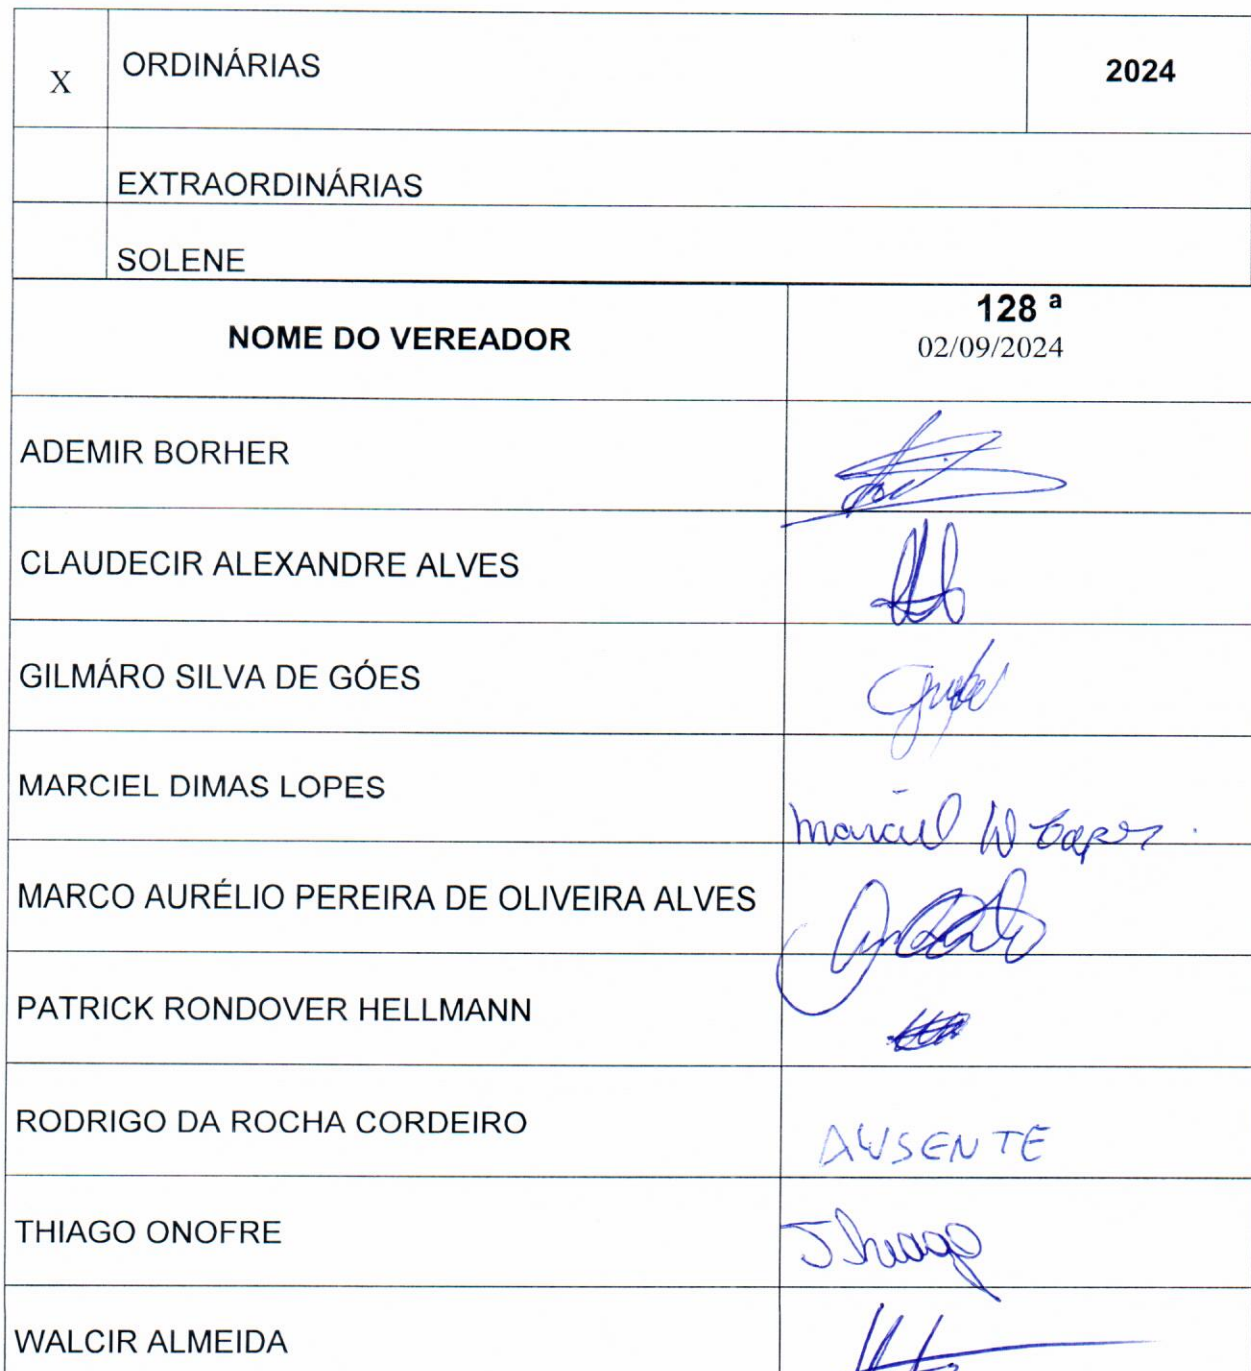 X ORDINÁRIAS 2024
EXTRAORDINÁRIAS
SOLENE
NOME DO VEREADOR 128 ª
02/09/2024
ADEMIR BORHER
CLAUDECIR ALEXANDRE ALVES
GILMÁRO SILVA DE GÓES
MARCIEL DIMAS LOPES
MARCO AURÉLIO PEREIRA DE OLIVEIRA ALVES
PATRICK RONDOVER HELLMANN
RODRIGO DA ROCHA CORDEIRO AUSENTE
THIAGO ONOFRE Thiago
WALCIR ALMEIDA